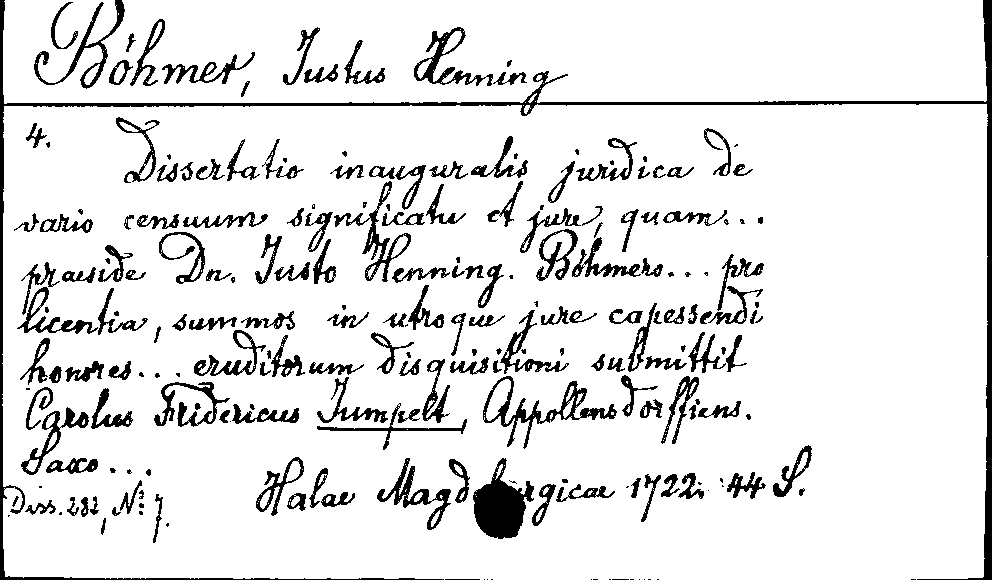 Böhmer, Justus Henning
4.
Dissertatio inauguralis juridica de
vario censuum significatu et jure, quam...
praeside Dn. Justo Henning. Böhmero... pro
licentia, summos in utroque jure capessendi
honores... eruditorum disquisitioni submittit
Carolus Fridericus Jumpelt, Appollensdorffiens.
Saxo...
Halae Magdeburgicae 1722. 44 S.
Diss. 282, No 7.